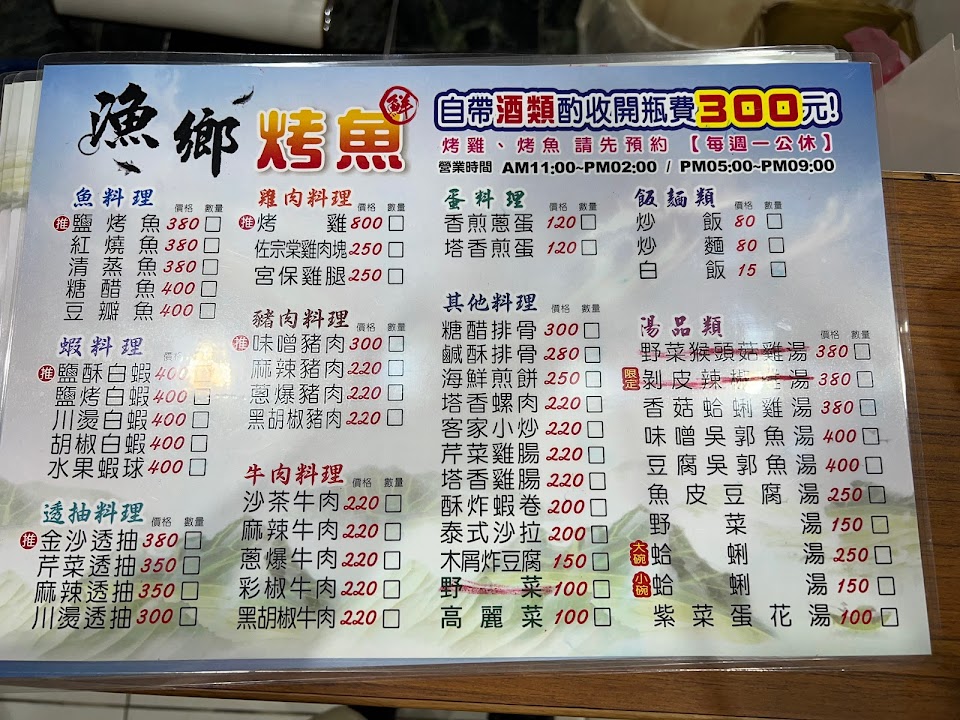 漁鄉烤魚 鮮
自帶酒類酌收開瓶費300元!
烤雞、烤魚 請先預約【每週一公休】
營業時間 AM11:00~PM02:00 / PM05:00~PM09:00
魚料理 價格 數量
推 鹽烤魚 380 □
紅燒魚 380 □
清蒸魚 380 □
糖醋魚 400 □
豆瓣魚 400 □
蝦料理 價格 數量
推 鹽酥白蝦 400 □
鹽烤白蝦 400 □
川燙白蝦 400 □
胡椒白蝦 400 □
水果蝦球 400 □
透抽料理 價格 數量
推 金沙透抽 380 □
芹菜透抽 350 □
麻辣透抽 350 □
川燙透抽 300 □
雞肉料理 價格 數量
推 烤雞 800 □
佐宗棠雞肉塊 250 □
宮保雞腿 250 □
豬肉料理 價格 數量
推 味噌豬肉 300 □
麻辣豬肉 220 □
蔥爆豬肉 220 □
黑胡椒豬肉 220 □
牛肉料理 價格 數量
沙茶牛肉 220 □
麻辣牛肉 220 □
蔥爆牛肉 220 □
彩椒牛肉 220 □
黑胡椒牛肉 220 □
蛋料理 價格 數量
香煎蔥蛋 120 □
塔香煎蛋 120 □
其他料理 價格 數量
糖醋排骨 300 □
鹹酥排骨 280 □
海鮮煎餅 250 □
塔香螺肉 220 □
客家小炒 220 □
芹菜雞腸 220 □
塔香雞腸 220 □
酥炸蝦卷 200 □
泰式沙拉 200 □
木屑炸豆腐 150 □
野菜 100 □
高麗菜 100 □
飯麵類 價格 數量
炒飯 80 □
炒麵 80 □
白飯 15 □
湯品類 價格 數量
野菜猴頭菇雞湯 380 □
限定 剝皮辣椒雞湯 380 □
香菇蛤蜊雞湯 380 □
味噌吳郭魚湯 400 □
豆腐吳郭魚湯 400 □
魚皮豆腐湯 250 □
野菜湯 150 □
大碗 蛤蜊湯 250 □
小碗 蛤蜊湯 150 □
紫菜蛋花湯 100 □